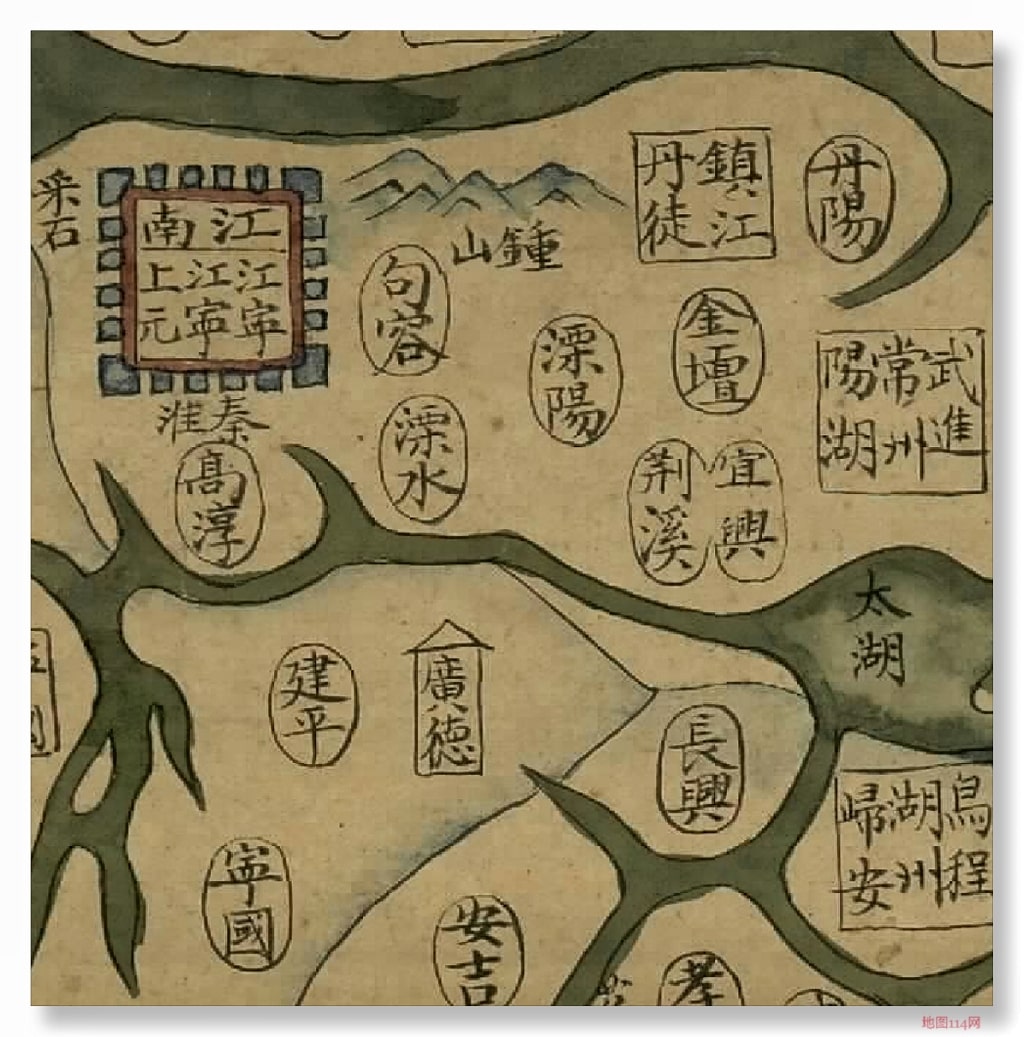 采石
江南
江寕
江寕
上元
鍾山
鎮江
丹徒
丹陽
句容
溧陽
金壇
武進
常州
陽湖
秦淮
髙淳
溧水
宜興
荆溪
太湖
建平
廣德
長興
烏程
湖州
歸安
寕國
安吉
孝
地图114网